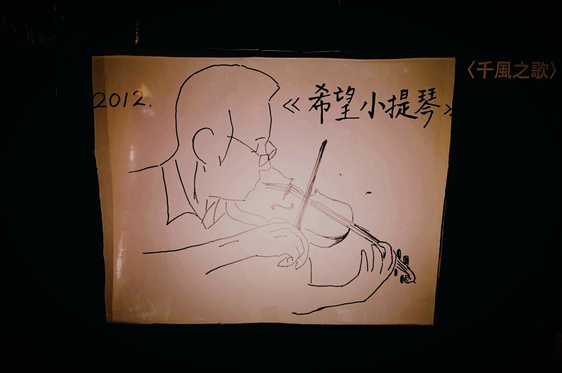 2012.
《希望小提琴》
〈千風之歌〉